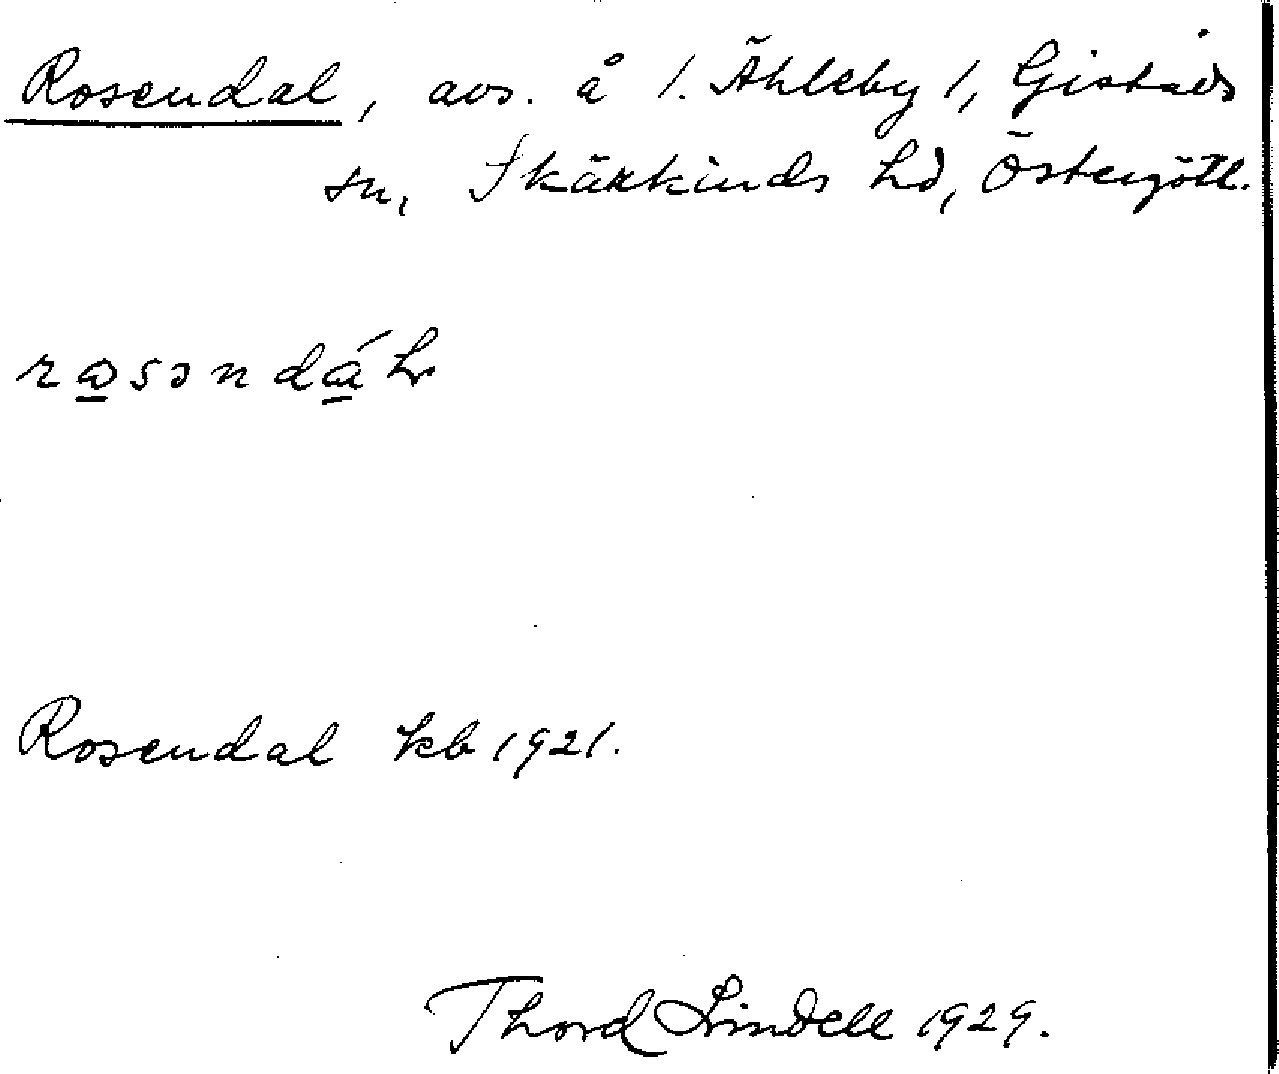 Rosendal, avs. å 1. Ähleby 1, Gistads
sn, Skärkinds hd, Östergötl.
Rosendal kb 1921.
Thord Lindell 1929.